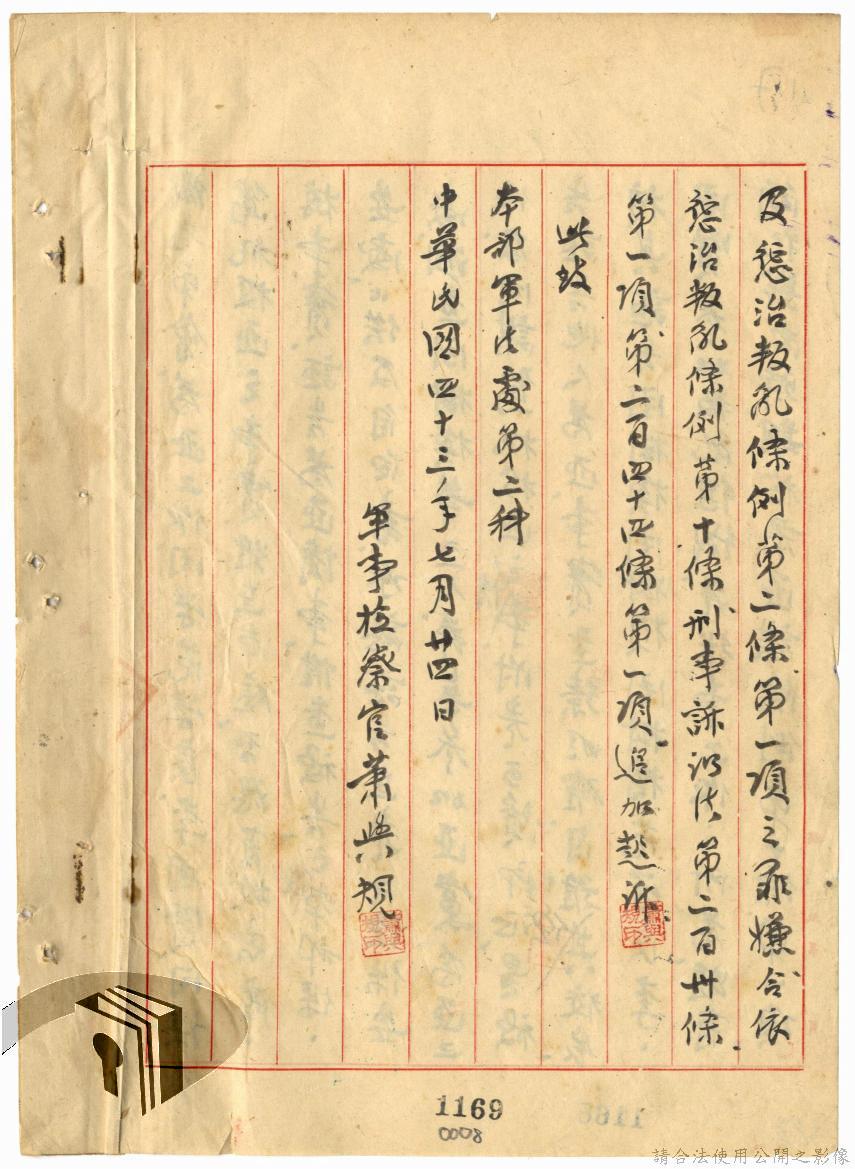 及懲治叛亂條例第二條第一項之罪嫌合依
懲治叛乱條例第十條刑事訴訟法第二百卅條
第一項第二百四十四條第一項追加起訴
此致
本部軍法處第二科
中華民國四十三年七月廿四日
軍事检察官萧與規
1169
0008
請合法使用公開之影像